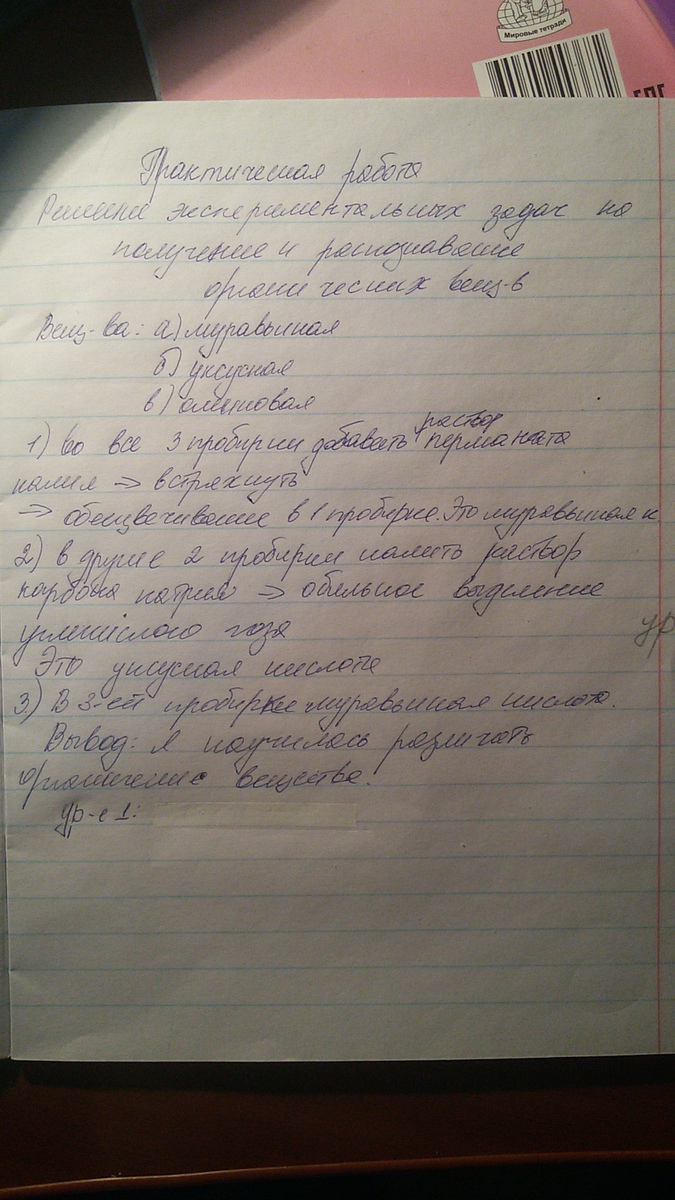 Мировые тетради
Практическая работа
Решение экспериментальных задач на
получение и распознавание
органических вещ-в
Вещ-ва: а) муравьиная
б) уксусная
в) олеиновая
1) во все 3 пробирки добавать раствор перманата
калия → встряхнуть
→ обесцвечивание в 1 пробирке. Это муравьиная к
2) в другие 2 пробирки налить раствор
карбона натрия → обильное выделение
углекислого газа
Это уксусная кислота
ур
3) В 3-ей пробирке муравьиная кислота.
Вывод: я научилась различать
органические вещества.
ур-е 1: